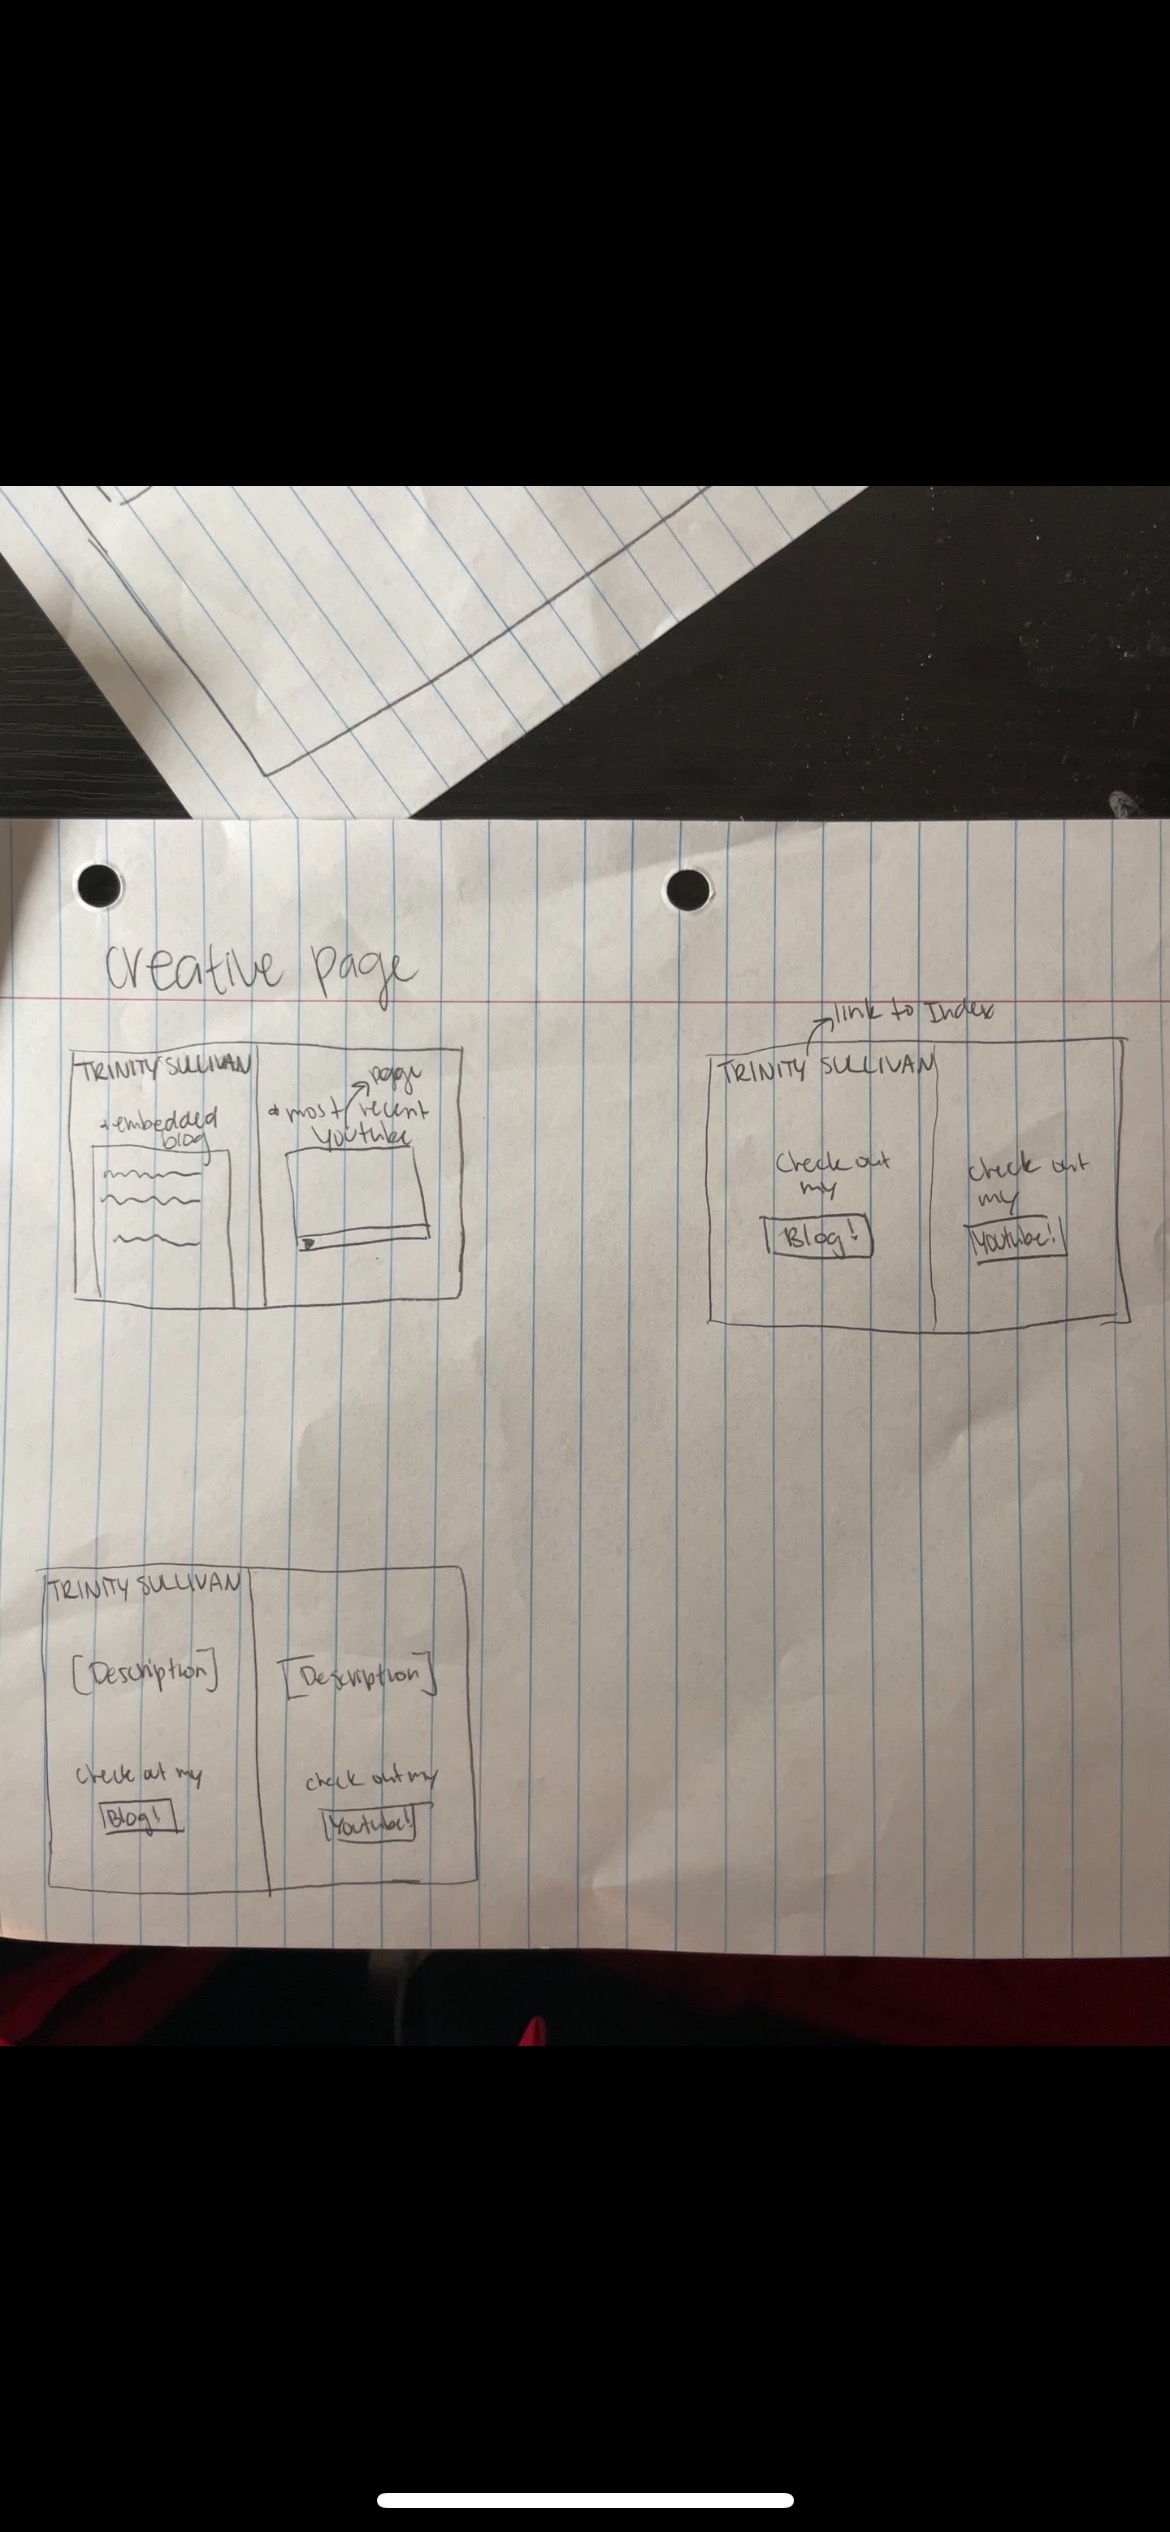 creative page
TRINITY SULLIVAN
*embedded
blog
page
*most recent
Youtube
link to Index
TRINITY SULLIVAN
Check out
my
Blog!
check out
my
Youtube!
TRINITY SULLIVAN
[Description]
check out my
Blog!
[Description]
check out my
Youtube!